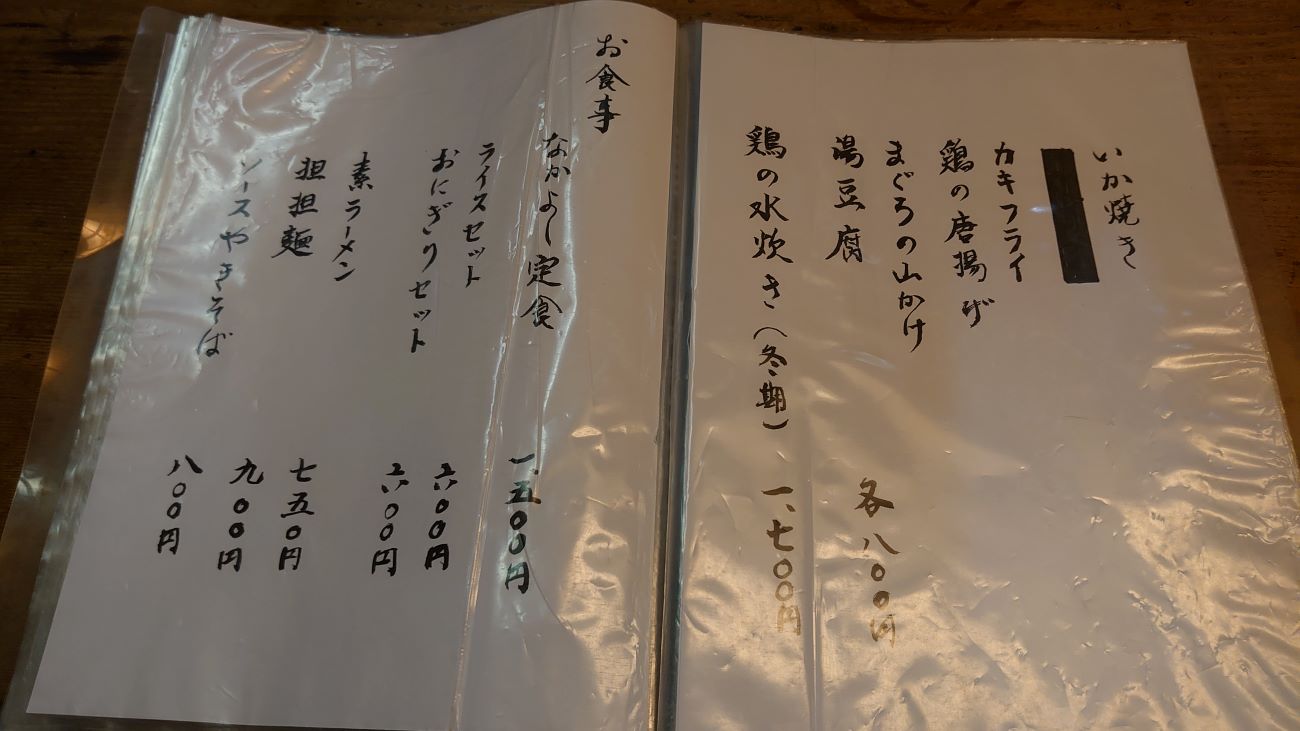 いか焼き
カキフライ
鶏の唐揚げ
まぐろの山かけ
湯豆腐
各八〇〇円
鶏の水炊き（冬期）
一、七〇〇円
お食事
なかよし定食
一、五〇〇円
ライスセット
六〇〇円
おにぎりセット
六〇〇円
素ラーメン
七五〇円
担担麺
九〇〇円
ソースやきそば
八〇〇円